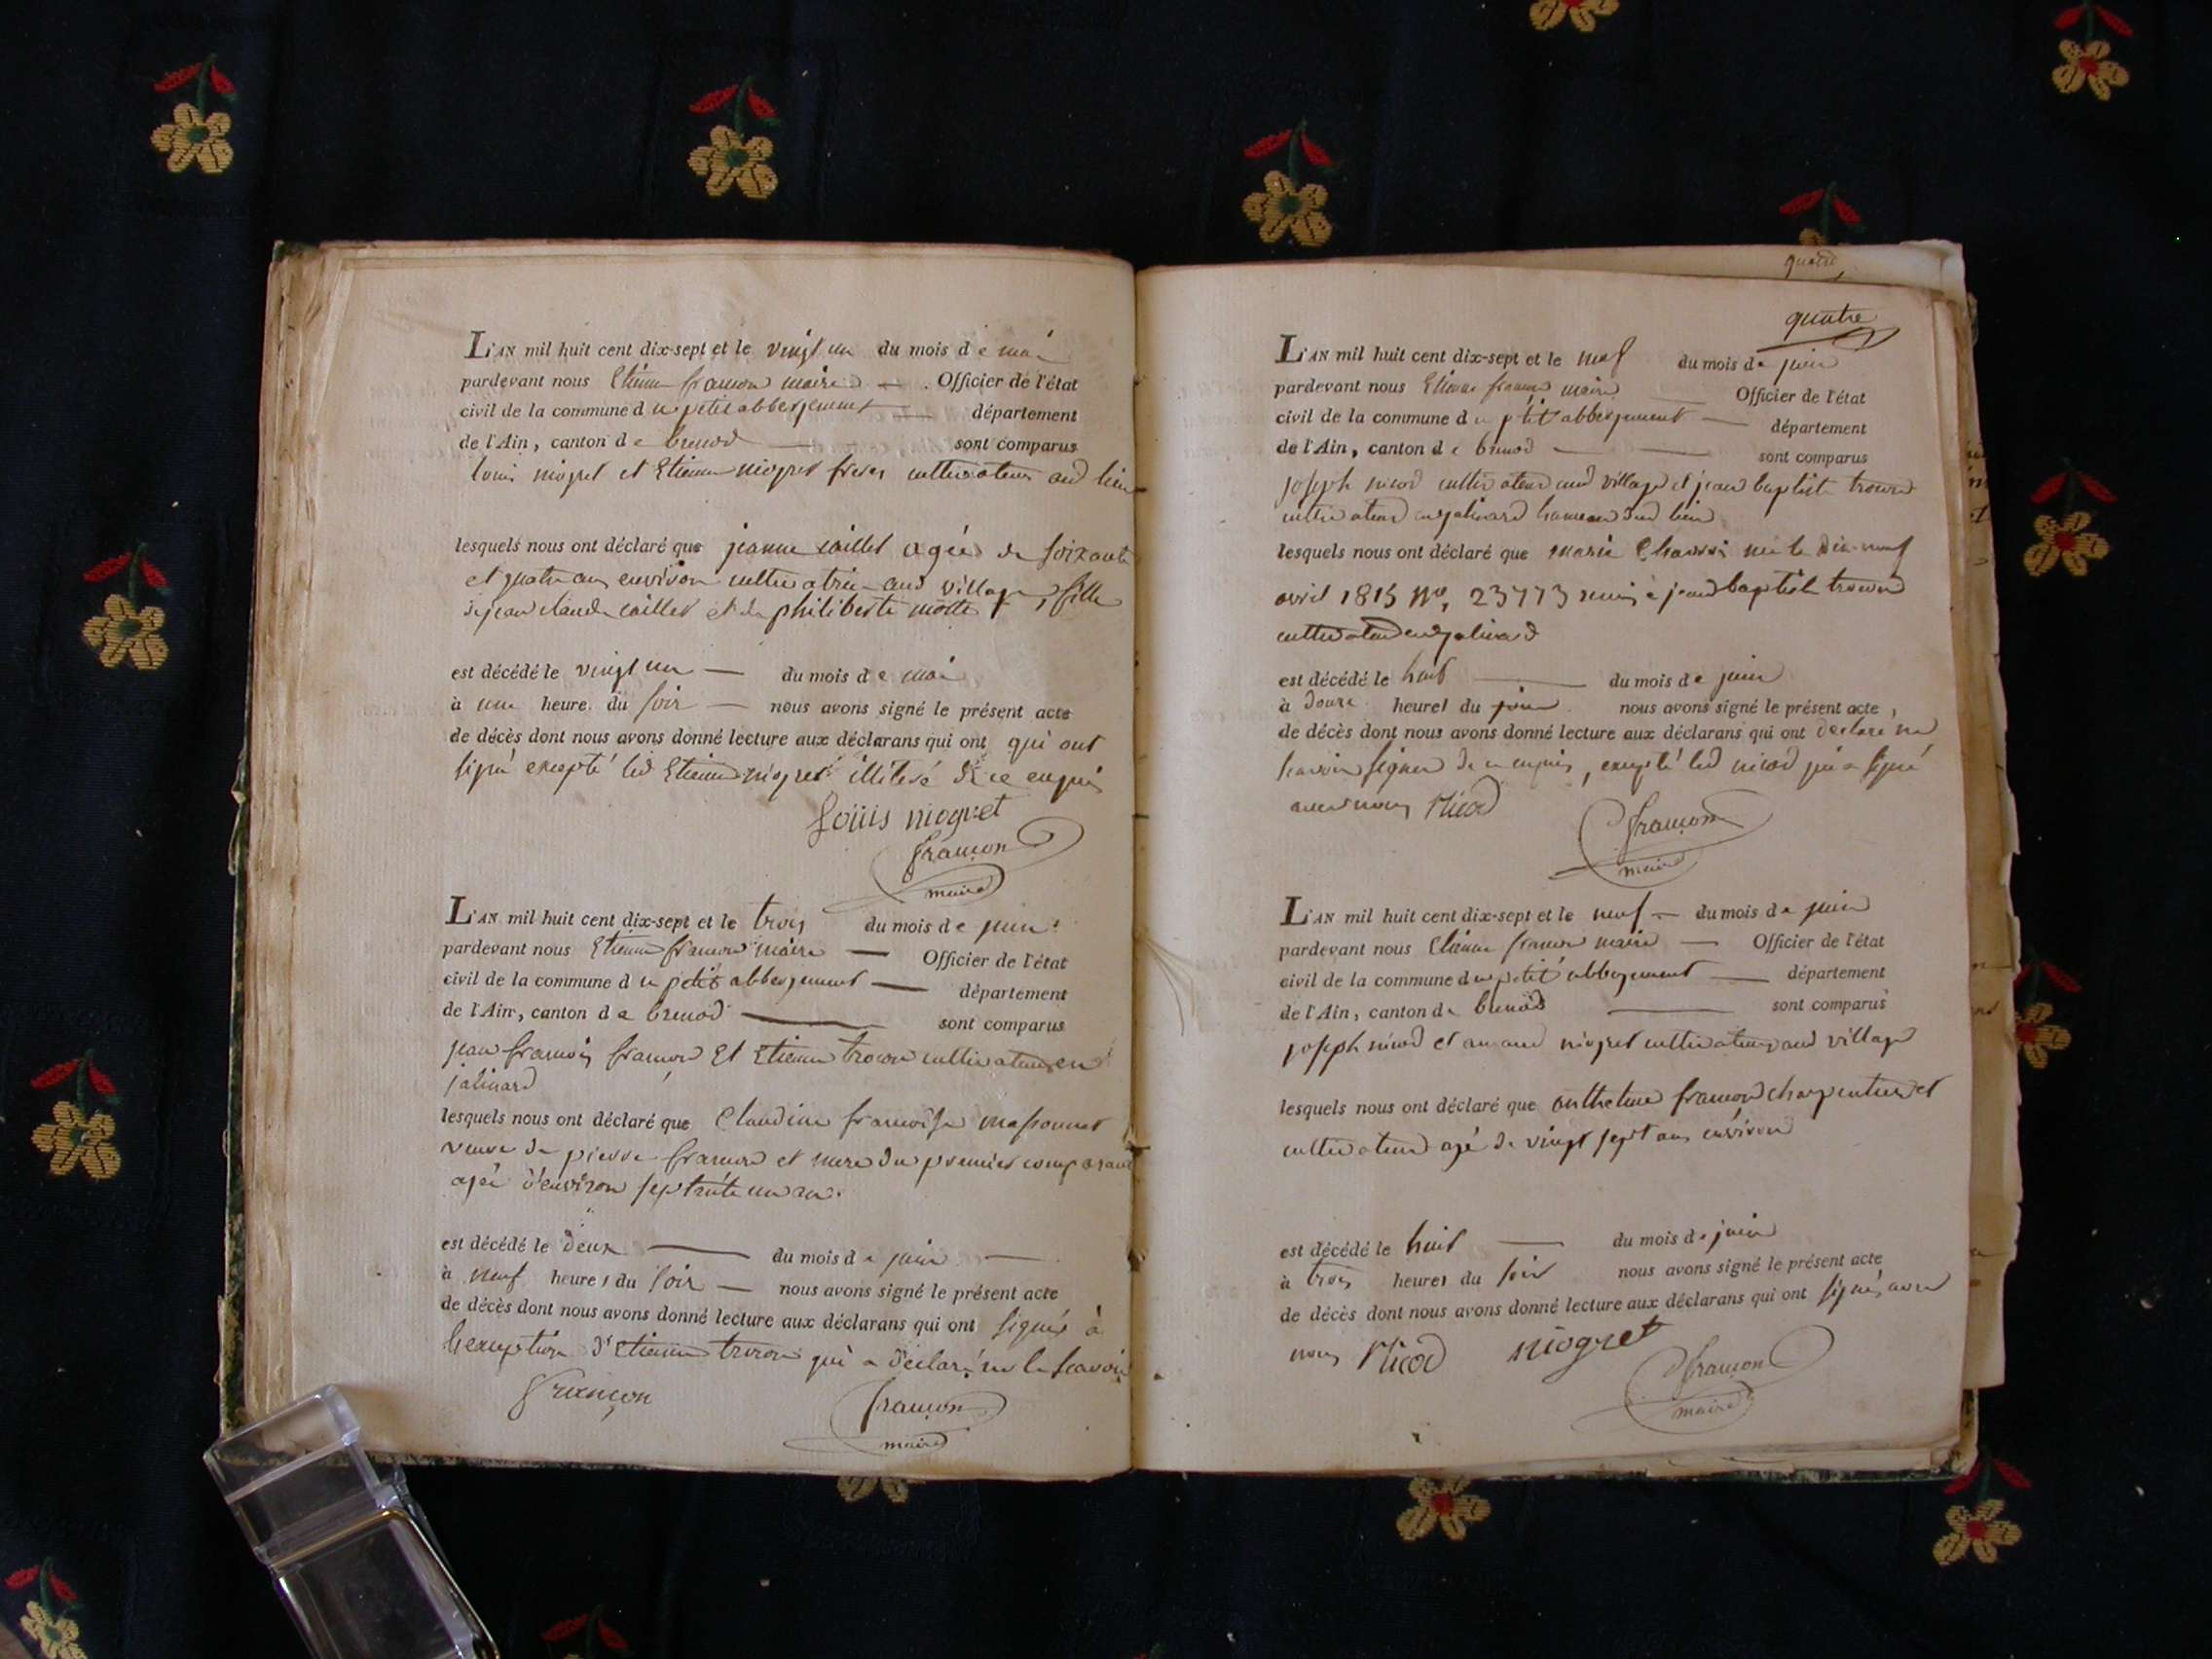 L'AN mil huit cent dix-sept et le vingt un du mois de mai
pardevant nous Etienne françon maire Officier de l'état
civil de la commune du petit abbergement département
de l'Ain, canton de brenod sont comparus
louis niogret et Etienne niogret freres cultivateurs aud lieu
lesquels nous ont déclaré que jeanne caillet agée de soixante
et quatre ans environ cultivatrice aud village, fille
de jean claude caillet et de philiberte
est décédé le vingt un du mois de mai
à une heure du soir nous avons signé le présent acte
de décès dont nous avons donné lecture aux déclarans qui ont qui ont
signé excepté led Etienne niogret illitéré de ce enquis
Louis niogret
françon
maire
L'AN mil huit cent dix-sept et le trois du mois de juin
pardevant nous Etienne françon maire Officier de l'état
civil de la commune du petit abbergement département
de l'Ain, canton de brenod sont comparus
jean françois françon Et Etienne cultivateurs en
jalinard
lesquels nous ont déclaré que Claudine françoise massonnet
veuve de pierre françon et mere du premier comparant
agée d'environ septante un an.
est décédé le deux du mois de juin
à neuf heures du soir nous avons signé le présent acte
de décès dont nous avons donné lecture aux déclarans qui ont signés à
l'exception d'Etienne qui a déclaré ne le scavoir
françon
françon
maire
quatre
quatre
L'AN mil huit cent dix-sept et le neuf du mois de juin
pardevant nous Etienne françon maire Officier de l'état
civil de la commune du ptit abbergement département
de l'Ain, canton de brenod sont comparus
joseph nicod cultivateur aud village et jean baptiste
cultivateur en jalinard hameau dud lieu
lesquels nous ont déclaré que marie née le dix-neuf
avril 1815 No. 23773 remis à jean baptiste
cultivateur en jalinard
est décédé le huit du mois de juin
à douze heures du nous avons signé le présent acte,
de décès dont nous avons donné lecture aux déclarans qui ont déclaré ne
scavoir signer de ce enquis, excepté led nicod qui a signé
avec nous Nicod
françon
maire
L'AN mil huit cent dix-sept et le neuf du mois de juin
pardevant nous Etienne françon maire Officier de l'état
civil de la commune du petit abbergement département
de l'Ain, canton de brenod sont comparus
joseph nicod et niogret cultivateurs aud village
lesquels nous ont déclaré que anthelme françon charpentier et
cultivateur agé de vingt sept ans environ
est décédé le huit du mois de juin
à trois heures du soir nous avons signé le présent acte
de décès dont nous avons donné lecture aux déclarans qui ont signés avec
nous Nicod niogret
françon
maire